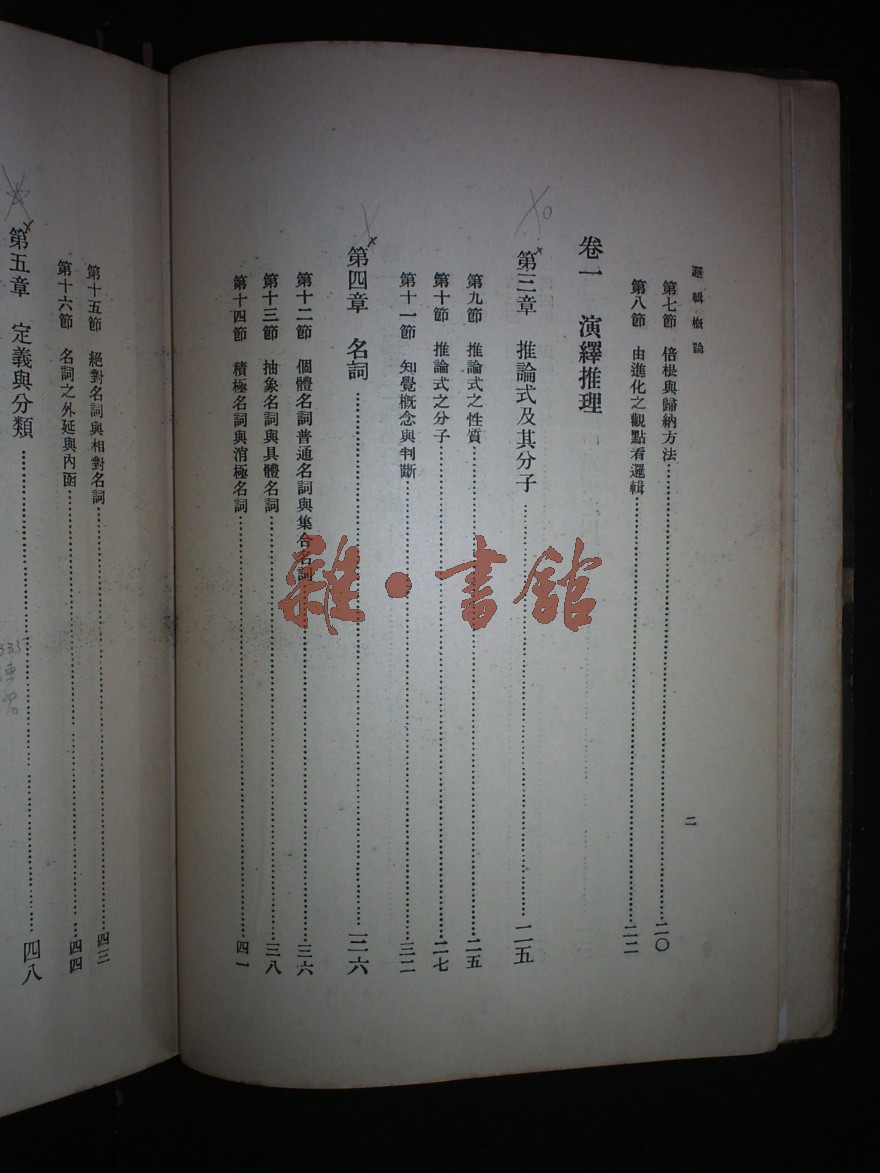 邏輯概論
二
第七節 倍根與歸納方法……二〇
第八節 由進化之觀點看邏輯……二二
卷一 演繹推理
第三章 推論式及其分子……二五
第九節 推論式之性質……二五
第十節 推論式之分子……二七
第十一節 知覺概念與判斷……三二
第四章 名詞……三六
第十二節 個體名詞普通名詞與集合名詞……三六
第十三節 抽象名詞與具體名詞……三八
第十四節 積極名詞與消極名詞……四一
第十五節 絕對名詞與相對名詞……四三
第十六節 名詞之外延與內函……四四
第五章 定義與分類……四八
雜·書館